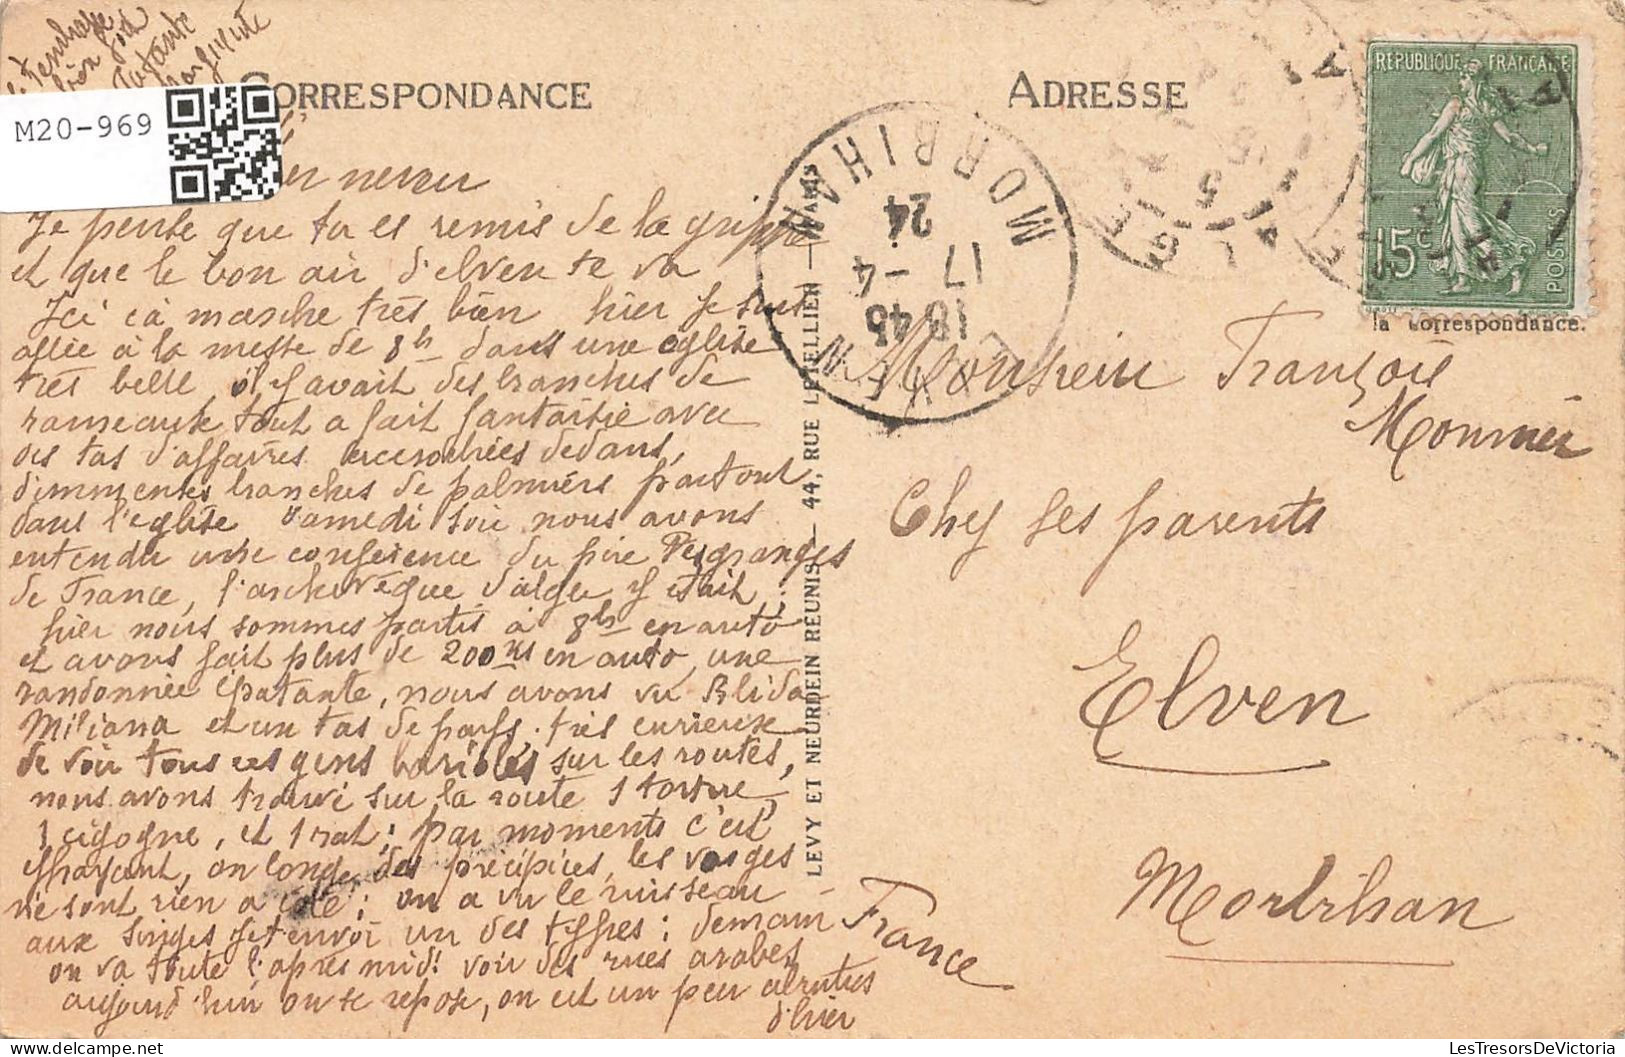 Tendresse
bien
Ta tante
Marguerite
M20-969
CORRESPONDANCE
ADRESSE
REPUBLIQUE FRANÇAISE
15c
POSTES
la correspondance.
MORBIHAN
ELVEN
18 45
17 -4
24
LEVY ET NEURDEIN REUNIS — 44, RUE LETELLIER —
neveu
Je pense que tu es remis de la grippe
et que le bon air d'elven te va
Ici ça marche très bien hier je suis
allée à la messe de 8h dans une eglise
très belle il y avait des branches de
rameaux tout a fait fantaisie avec
des tas d'affaires accrochées dedans,
d'immenses branches de palmiers partout
dans l'eglise samedi soir nous avons
entendu une conference du père
de France, l'archevêque d'alger y etait
hier nous sommes partis à 8h en auto
et avons fait plus de 200 en auto, une
randonnée épatante, nous avons vu Blida
Miliana et un tas de pays. très curieux
de voir tous ces gens bariolés sur les routes,
nous avons trouvé sur la route 1 tortue,
1 cigogne, et 1 rat; par moments c'est
effrayant, on longe des précipices, les vosges
ne sont rien a côté; on a vu le ruisseau
aux singes je t'envoi un des types; demain
on va toute l'après midi voir des rues arabes
aujourd'hui on se repose, on est un peu
d'hier
Monsieur François
Monnier
Chez ses parents
Elven
Morbihan
France
LesTresorsDeVictoria